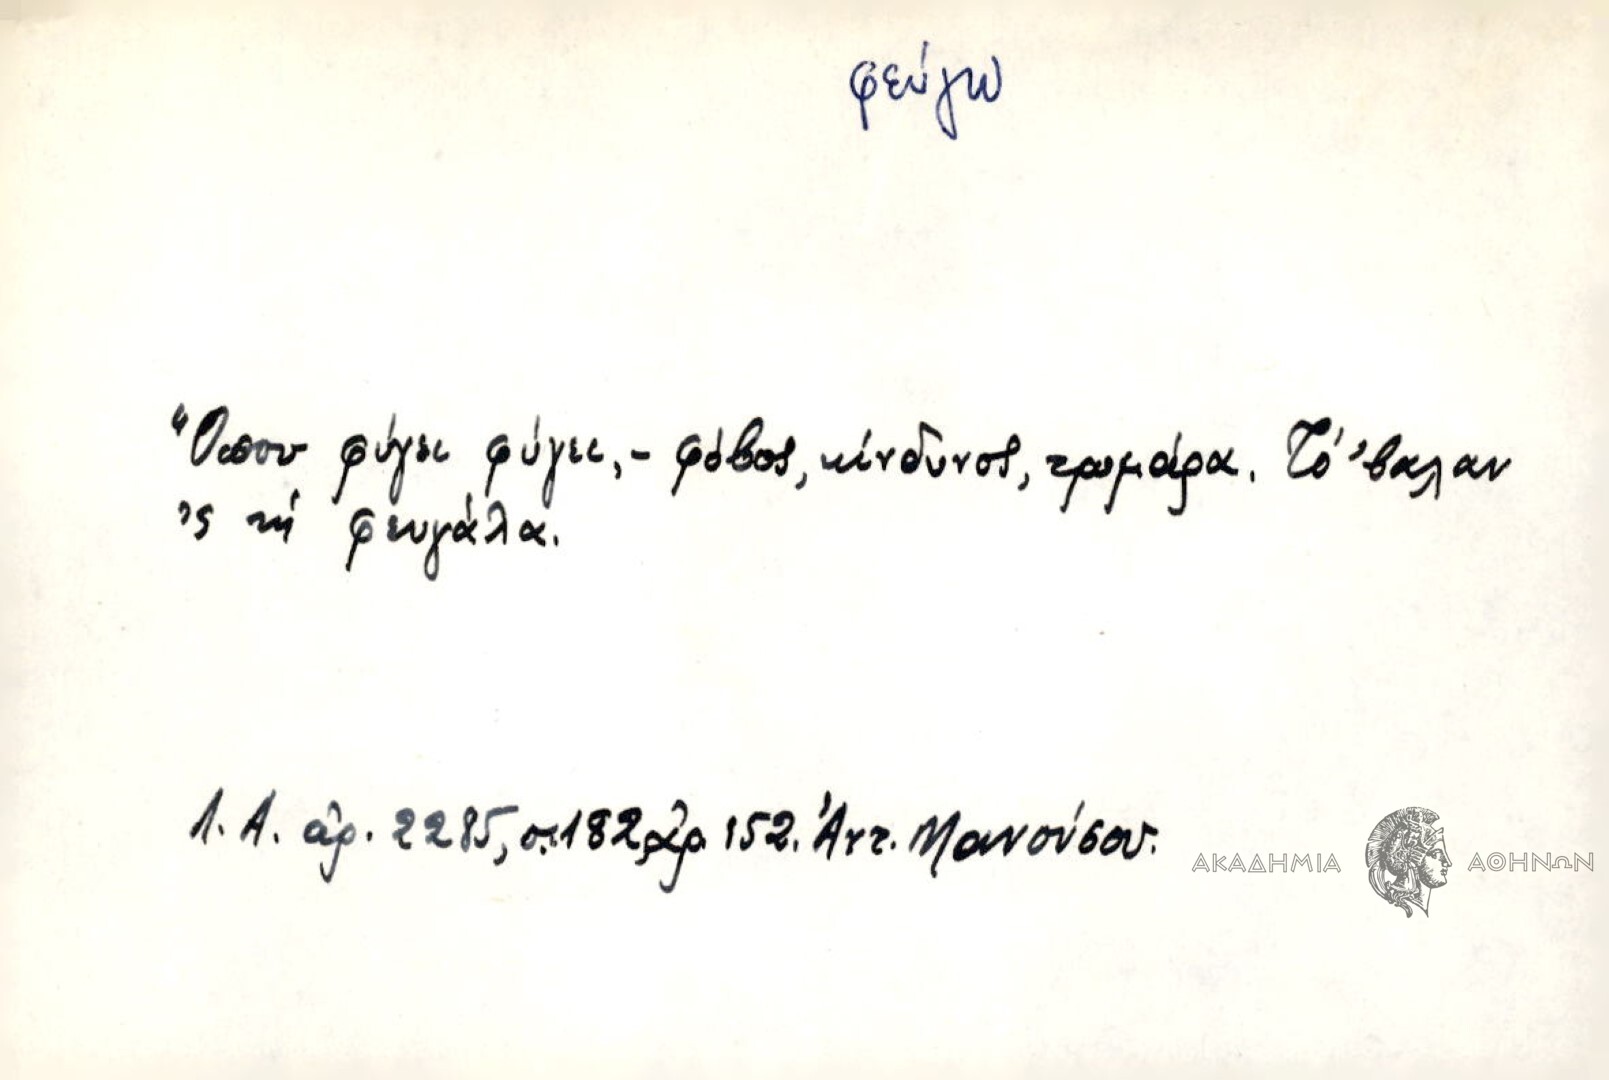 φεύγω
Ὅπου φύγει φύγει, - φόβος, κίνδυνος, τρομάρα. Τό 'βαλαν
'ς τή φευγάλα.
Λ. Α. ἀρ. 2285, σ. 182, ἀρ. 152. Ἀντ. Μανούσου.
ΑΚΑΔΗΜΙΑ ΑΘΗΝΩΝ